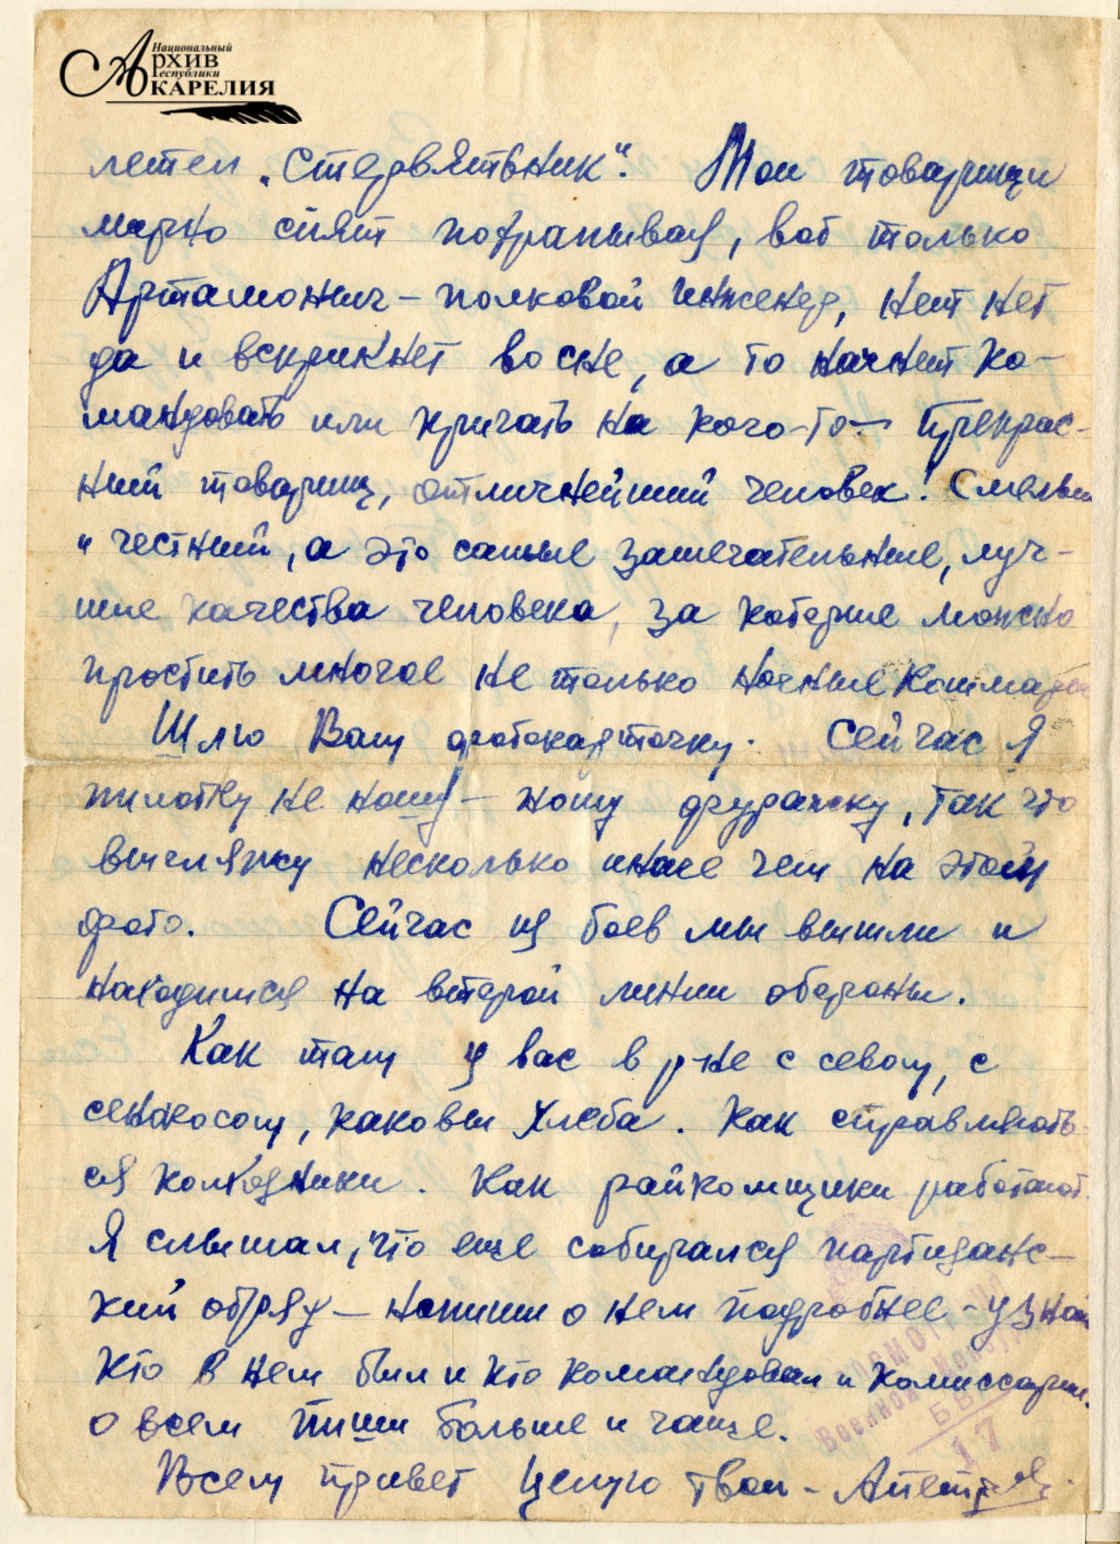 Национальный
Архив
Республики
КАРЕЛИЯ
летел „стервятьник“. Мои товарищи
мирно спят похрапывая, вот только
Артамоныч – полковой инженер, нет нет
да и вскрикнет во сне, а то начнет ко-
мандовать или кричать на кого-то – Прекрас-
ный товарищ, отличнейший человек! Смелый
и честный, а это самые замечательные, луч-
шие качества человека, за которые можно
простить многое не только ночные кошмары
Шлю Вам фотокарточку. Сейчас я
пилотку не ношу – ношу фуражку, так что
выгляжу несколько иначе чем на этой
фото. Сейчас из боев мы вышли и
находимся на второй линии обороны.
Как там у вас в р-не с севом, с
сенокосом, каковы хлеба. Как справляють
ся колхозники. Как райкомщики работают.
Я слышал, что еще собирался партизанс-
кий отряд – напиши о нем подробнее – узнай
кто в нем был и кто командовал и комиссарил.
о всем пиши больше и чаще.
Всем привет Целую твой –
Военной
17